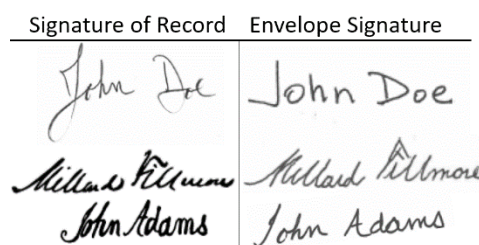 Signature of Record Envelope Signature
John Doe John Doe
Millard Fillmore Millard Fillmore
John Adams John Adams